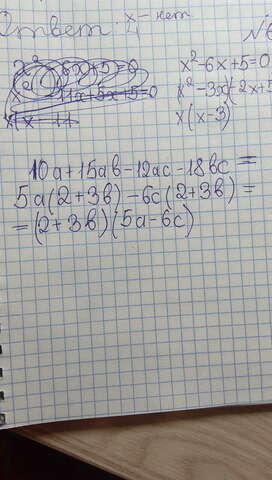 Ответ: x – нет
x² - 6x + 5 = 0
x² - 3x - 2x + 5
x(x - 3)
10a + 15ab - 12ac - 18bc =
5a(2 + 3b) - 6c(2 + 3b) =
= (2 + 3b)(5a - 6c)